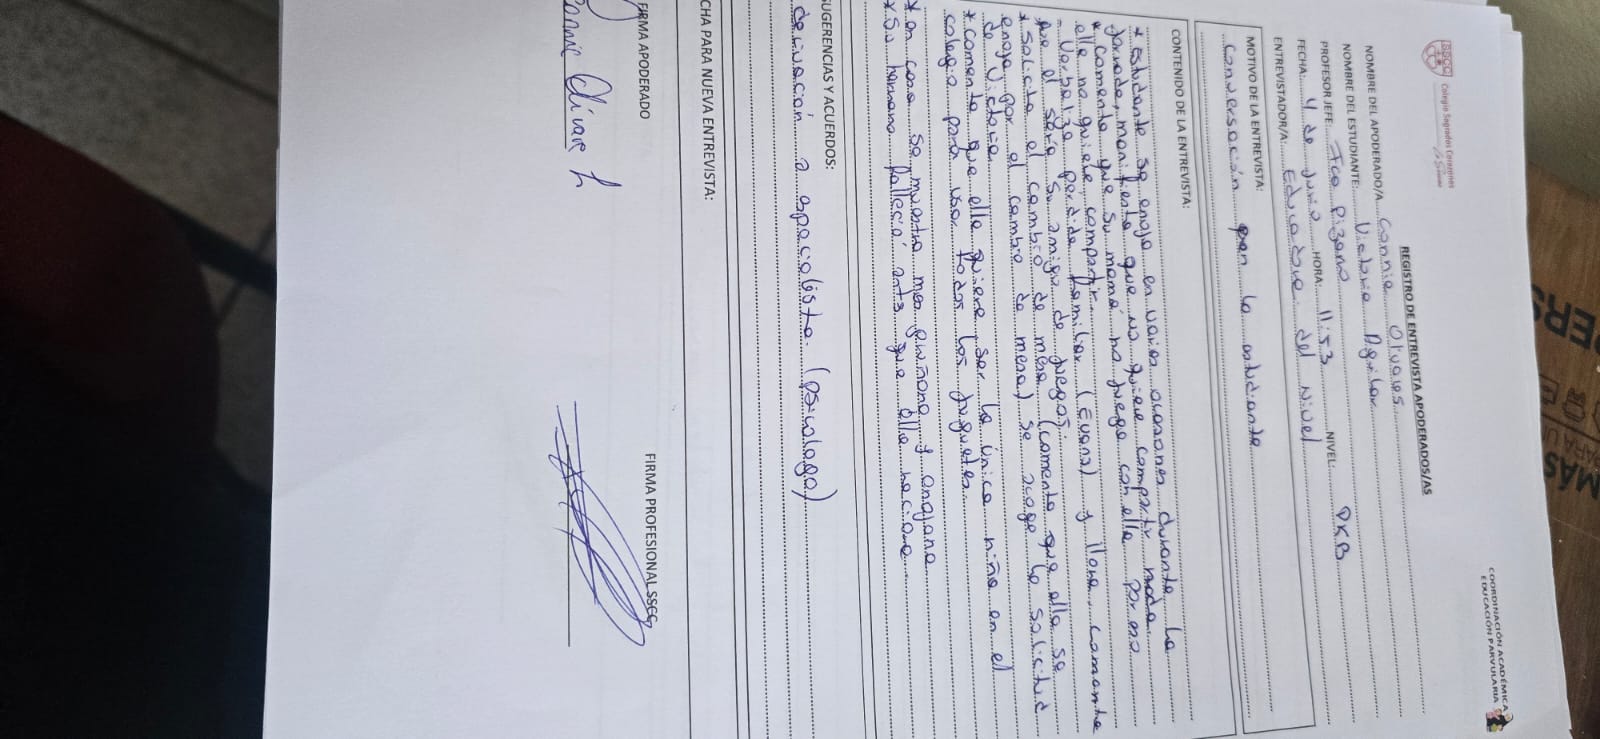 SSCC
Colegio Sagrados Corazones
COORDINACIÓN ACADÉMICA
EDUCACIÓN PARVULARIA
REGISTRO DE ENTREVISTA APODERADOS/AS
NOMBRE DEL APODERADO/A Connie Olivares
NOMBRE DEL ESTUDIANTE: Victoria Aguilar
PROFESOR JEFE: Fca Pizarro NIVEL: PKB
FECHA: 4 de Junio HORA: 11:53
ENTREVISTADOR/A: Educadora del nivel
MOTIVO DE LA ENTREVISTA:
Conversación con la estudiante
CONTENIDO DE LA ENTREVISTA:
* Estudiante se enoja en varias ocasiones durante la
jornada, manifiesta que no quiere compartir nada.
* Comenta que su mamá no juega con ella por eso
ella no quiere compartir.
- Verbaliza perdida familiar (Evans) y llora, comenta
que el sería su amigo de juegos.
* Solicita el cambio de mesa (comenta que ella se
enoja por el cambio de mesa) se acoge la solicitud
de Victoria
* Comenta que ella quiere ser la única niña en el
colegio para usar todos los juguetes.
* en casa se muestra mas gruñona y enojona
* Su hermano falleció antes que ella naciera.
SUGERENCIAS Y ACUERDOS:
derivación a especialista. (psicologa)
CHA PARA NUEVA ENTREVISTA:
Connie Olivares L
FIRMA APODERADO
FIRMA PROFESIONAL SSCC
MÁS
PARA U
PERS